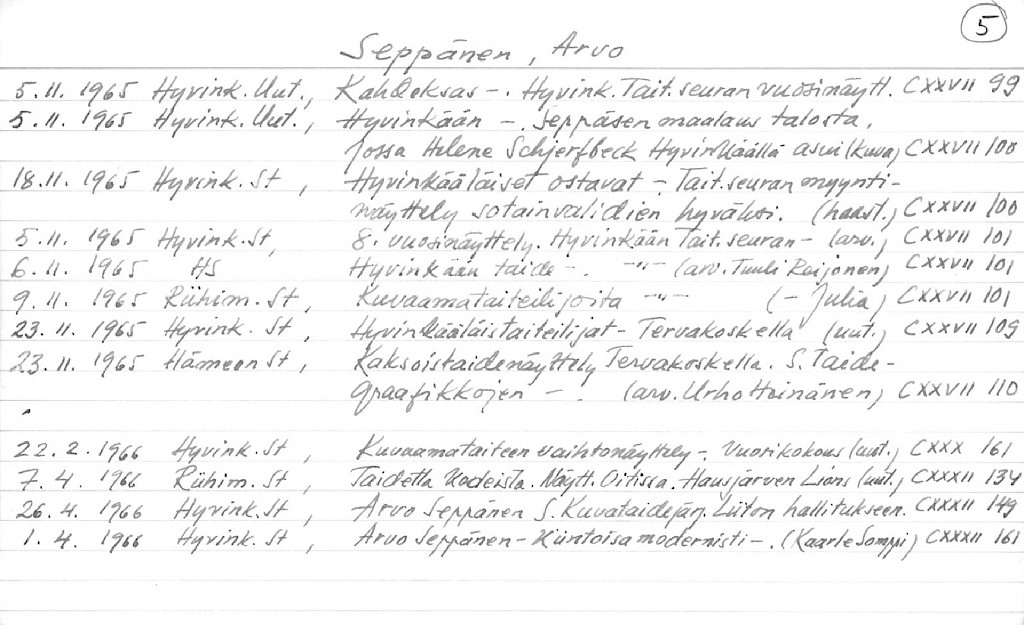 5
Seppänen, Arvo
5.11. 1965 Hyvink. Uut., Kahdeksas -. Hyvink. Tait. seuran vuosinäytt. CXXVII 99
5.11. 1965 Hyvink. Uut., Hyvinkään -. Seppäsen maalaus talosta,
jossa Helene Schjerfbeck Hyvinkäällä asui (kuva) CXXVII 100
18.11. 1965 Hyvink. St, Hyvinkääläiset ostavat - Tait. seuran myynti-
näyttely sotainvalidien hyväksi. (haast.) CXXVII 100
5.11. 1965 Hyvink. St, 8. vuosinäyttely. Hyvinkään Tait. seuran - (arv.) CXXVII 101
6.11. 1965 HS Hyvinkään taide -. -"- (arv. Tuuli Reijonen) CXXVII 101
9.11. 1965 Riihim. St, Kuvaamataiteilijoita -"- (- Julia) CXXVII 101
23.11. 1965 Hyvink. St, Hyvinkääläistaiteilijat - Tervakoskella (uut.) CXXVII 109
23.11. 1965 Hämeen St, Kaksoistaidenäyttely Tervakoskella. S. Taide-
graafikkojen -. (arv. Urho Heinänen) CXXVII 110
22.2. 1966 Hyvink. St, Kuvaamataiteen vaihtonäyttely -. Vuosikokous (uut.) CXXX 161
7.4. 1966 Riihim. St, Taidetta kodeista. Näytt. Oitissa. Hausjärven Lions (uut.) CXXXII 134
26.4. 1966 Hyvink. St, Arvo Seppänen S. Kuvataidejärj. Liiton hallitukseen. CXXXII 149
1.4. 1966 Hyvink. St, Arvo Seppänen - Kiintoisa modernisti -. (Kaarle Somppi) CXXXII 161